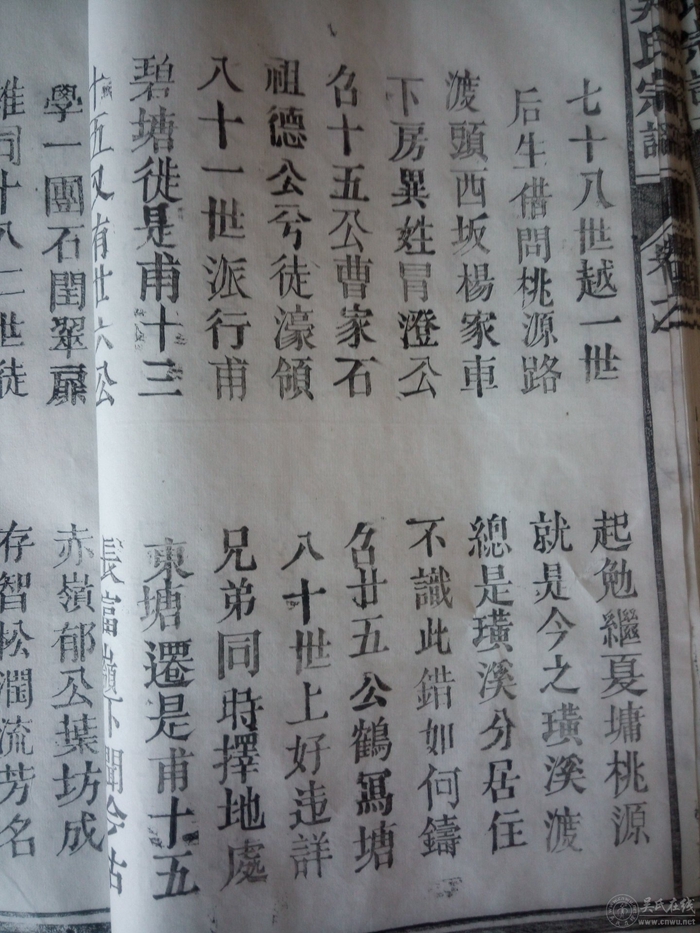 氏宗譜
卷之
七十八世越一世 起勉繼夏墉桃源
后生借問桃源路 就是今之璜溪渡
渡頭西坂楊家車 總是璜溪分居住
下房異姓冒澄公 不識此錯如何鑄
名十五公曹家石 名廿五公鶴寫塘
祖德公兮徒濠領 八十世上好违詳
八十一世派行甫 兄弟同時擇地處
碧塘徙是甫十三 東塘遷是甫十五
五又有廿六公 下聞今古
學一團石閏翠扉 赤嶺郁公葉坊成
同十八二世徒 存智松潤流芳名
吴氏在线
www.cnwu.net